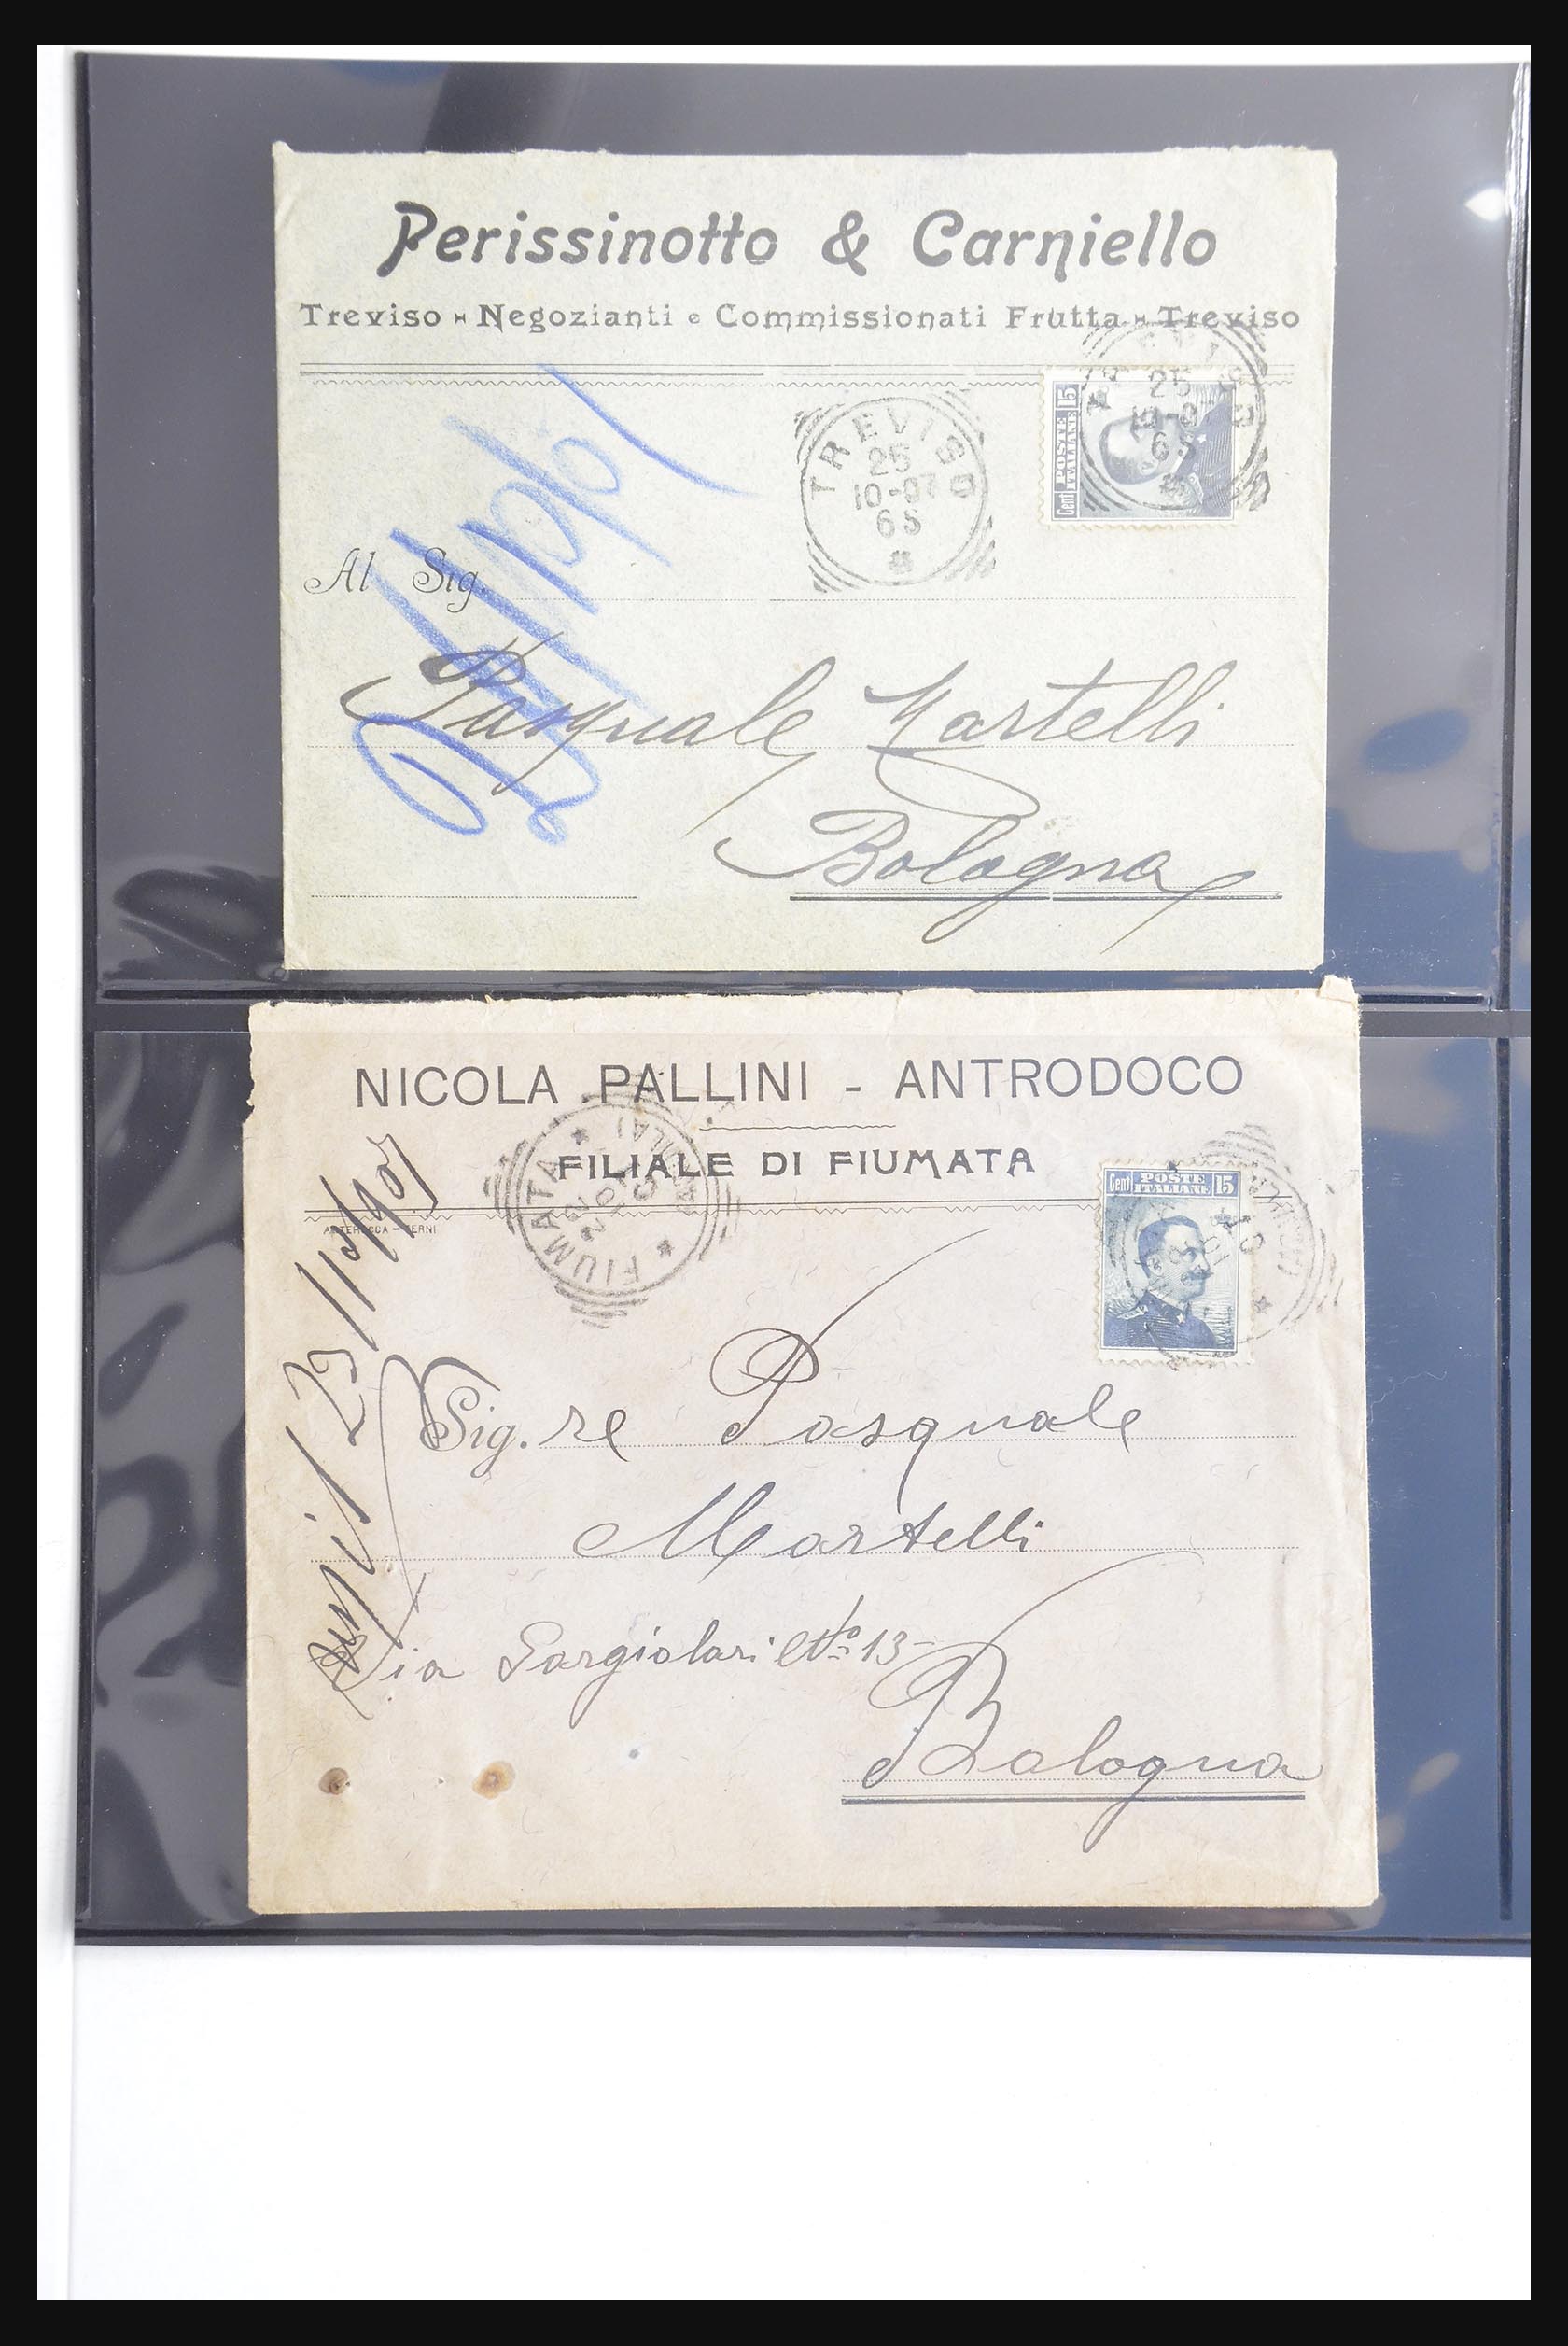 Perissinotto & Carniello
Treviso - Negozianti e Commissionati Frutta - Treviso
TREVISO
25
10-07
6S
Cent POSTE ITALIANE 15
25
10-07
6S
Al Sig.
Pasquale Martelli
Bologna
NICOLA PALLINI - ANTRODOCO
FILIALE DI FIUMATA
FIUMATA
Cent POSTE ITALIANE 15
Sig.re Pasquale
Martelli
Via Gargiolari No 13
Bologna